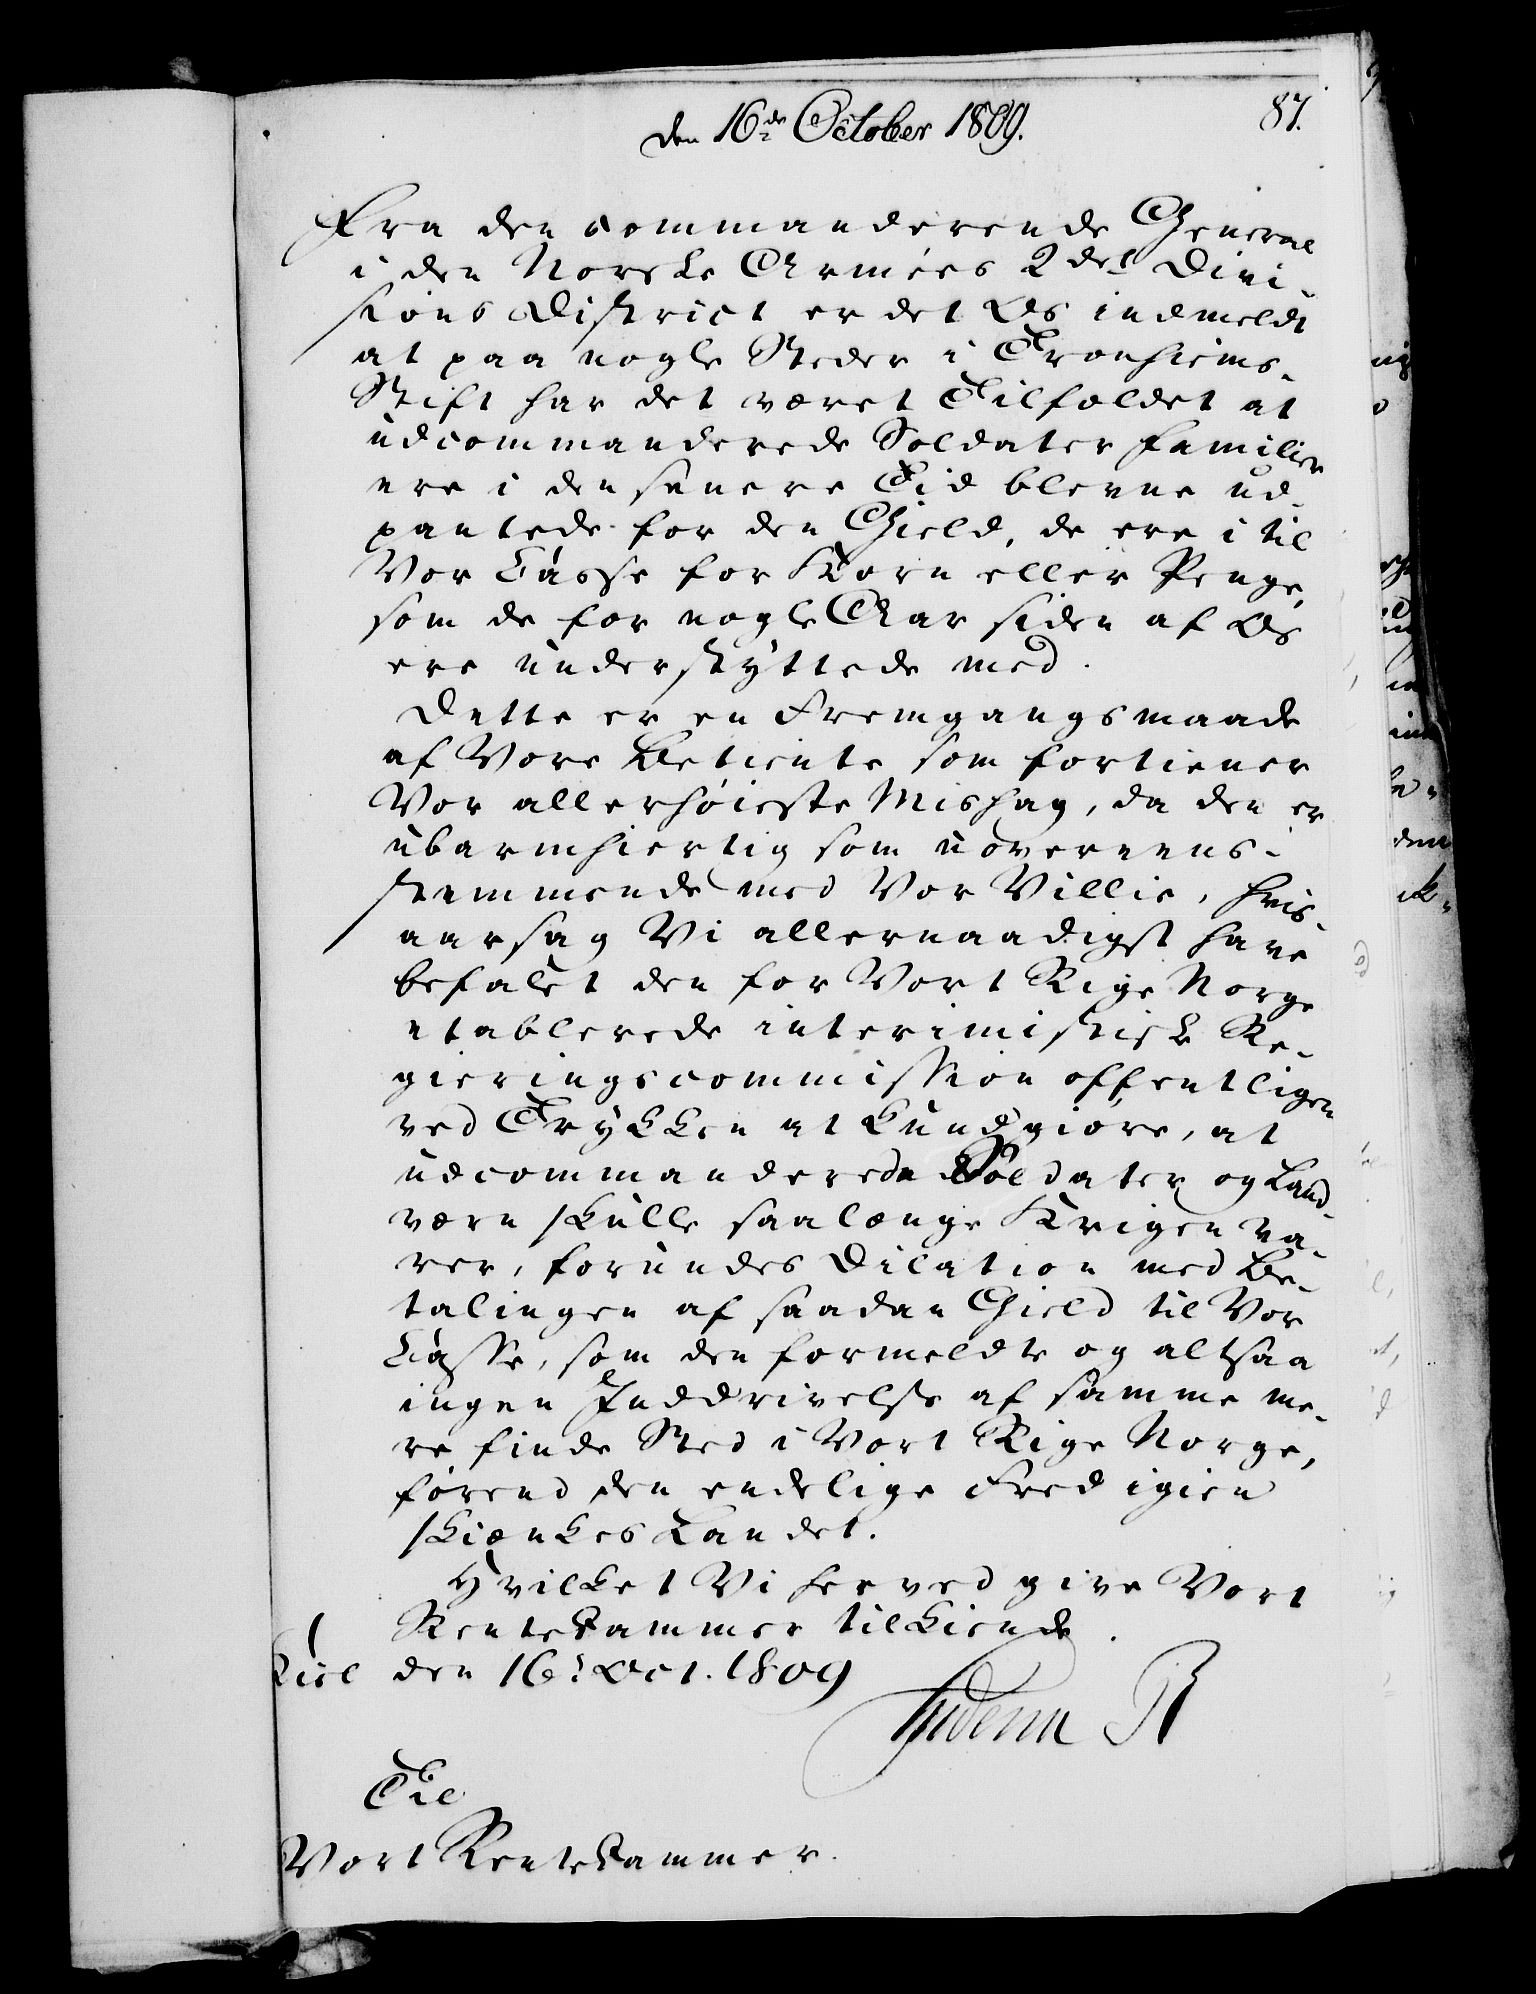 den 16de October 1809.
87.
Fra den commanderende General
i den Norske Armées 2det Divi-
sions District er det Os indmeldt
at paa nogle Steder i Tronhiems-
Stift har det været Tilfældet at
udcommanderede Soldater Familier
ere i den senere Tid blevne ud-
pantede for den Gield, de ere i til
Vor Casse for Korn eller Penge,
som de for nogle Aar siden af Os
ere understyttede med.
Dette er en Fremgangsmaade
af Vore Betiente som fortiener
Vor allerhøieste Mishag, da den er
ubarmhiertig som uovereens-
stemmende med Vor Villie, hvis-
aarsag Vi allernaadigst have
befalet den for Vort Rige Norge
etablerede interimistisk Re-
gieringscommission offentligen
ved Trykken at kundgiøre, at
udcommanderede Soldater og Land-
værn skulle saalænge Krigen va-
rer, forundes Dilation med Be-
talingen af saadan Gield til Vor
Casse, som den formeldte og altsaa
ingen Inddrivelse af samme me-
re finde Sted i Vort Rige Norge,
førend den endelige Fred igien
skienkes Landet.
Hvilket Vi herved give Vort
Rentekammer tilkiende.
Kiel den 16: Oct. 1809
Friderich R
Til
Vort Rentekammer.